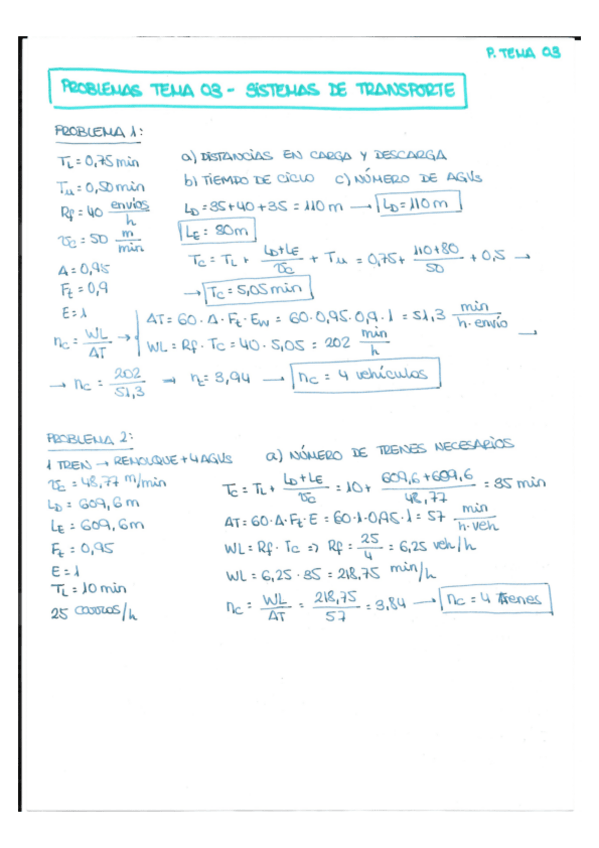 P. TEMA 03
PROBLEMAS TEMA 03 - SISTEMAS DE TRANSPORTE
PROBLEMA 1:
TL = 0,75 min
Tu = 0,50 min
Rf = 40 envíos/h
vc = 50 m/min
A = 0,95
Ft = 0,9
E = 1
a) DISTANCIAS EN CARGA Y DESCARGA
b) TIEMPO DE CICLO c) NÚMERO DE AGVs
LD = 35 + 40 + 35 = 110 m → LD = 110 m
LE = 80 m
Tc = TL + (LD + LE)/vc + Tu = 0,75 + (110 + 80)/50 + 0,5 →
→ Tc = 5,05 min
nc = WL/AT →
AT = 60 · A · Ft · Ew = 60 · 0,95 · 0,9 · 1 = 51,3 min/h·envío
WL = Rf · Tc = 40 · 5,05 = 202 min/h →
→ nc = 202/51,3 → nc = 3,94 → nc = 4 vehículos
PROBLEMA 2:
1 TREN → REMOLQUE + 4 AGVs
vc = 48,77 m/min
LD = 609,6 m
LE = 609,6 m
Ft = 0,95
E = 1
TL = 10 min
25 carros/h
a) NÚMERO DE TRENES NECESARIOS
Tc = TL + (LD + LE)/vc = 10 + (609,6 + 609,6)/48,77 = 35 min
AT = 60 · A · Ft · E = 60 · 1 · 0,95 · 1 = 57 min/h·veh
WL = Rf · Tc => Rf = 25/4 = 6,25 veh/h
WL = 6,25 · 35 = 218,75 min/h
nc = WL/AT = 218,75/57 = 3,84 → nc = 4 trenes